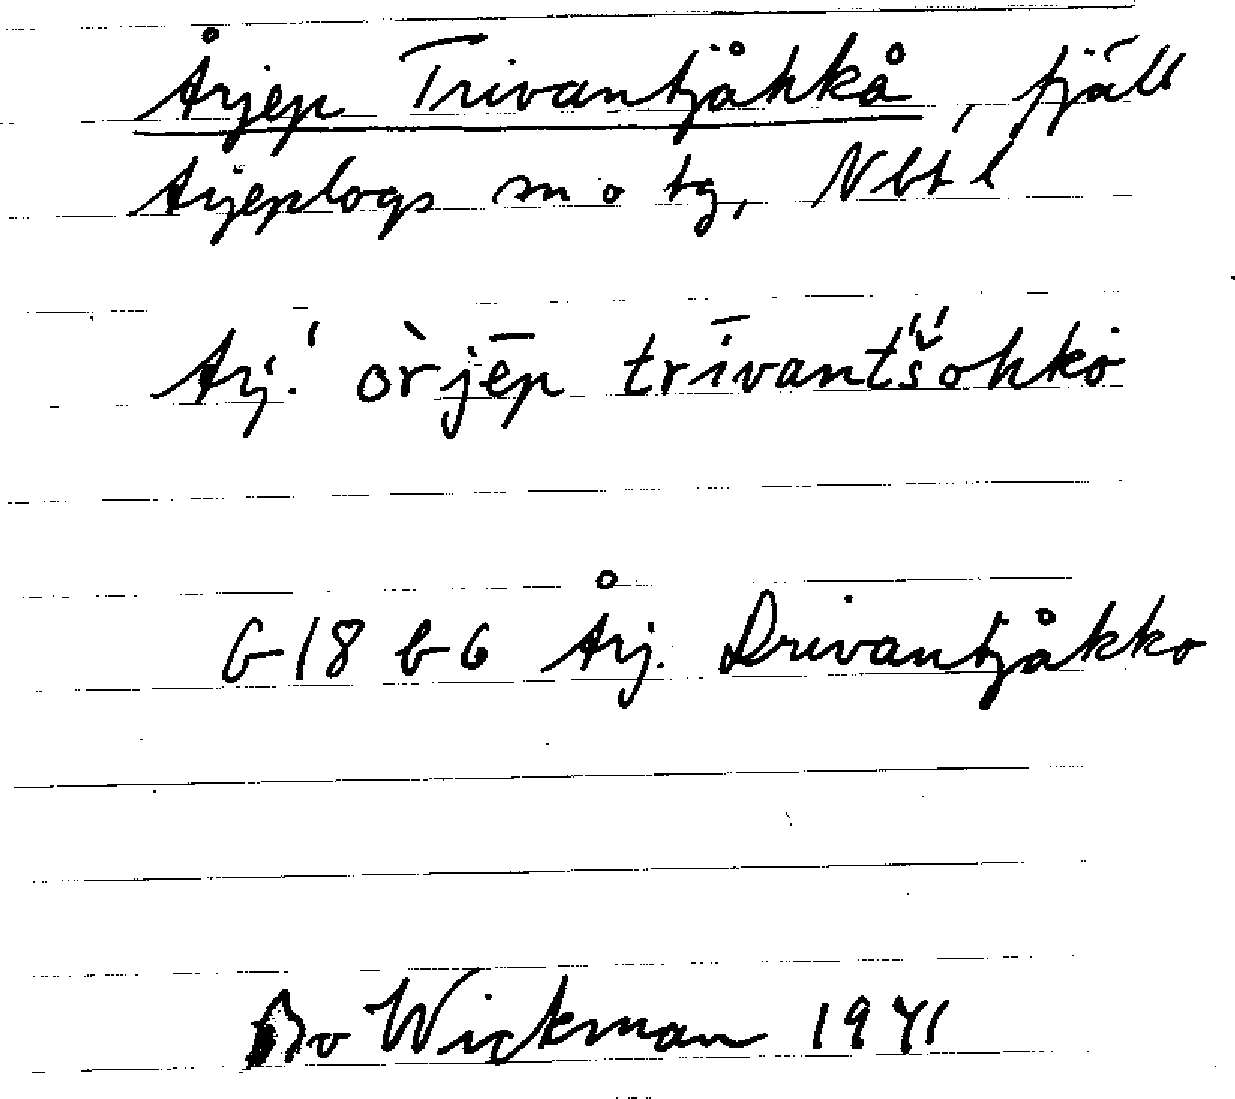 Årjep Trivantjåhkå, fjäll
Arjeplogs sn o tg, Nbt l
Arj.' òrjēp trīvantš̌ohkȯ
G 18 b 6 Årj. Drivantjåkko
Bo Wickman 1941